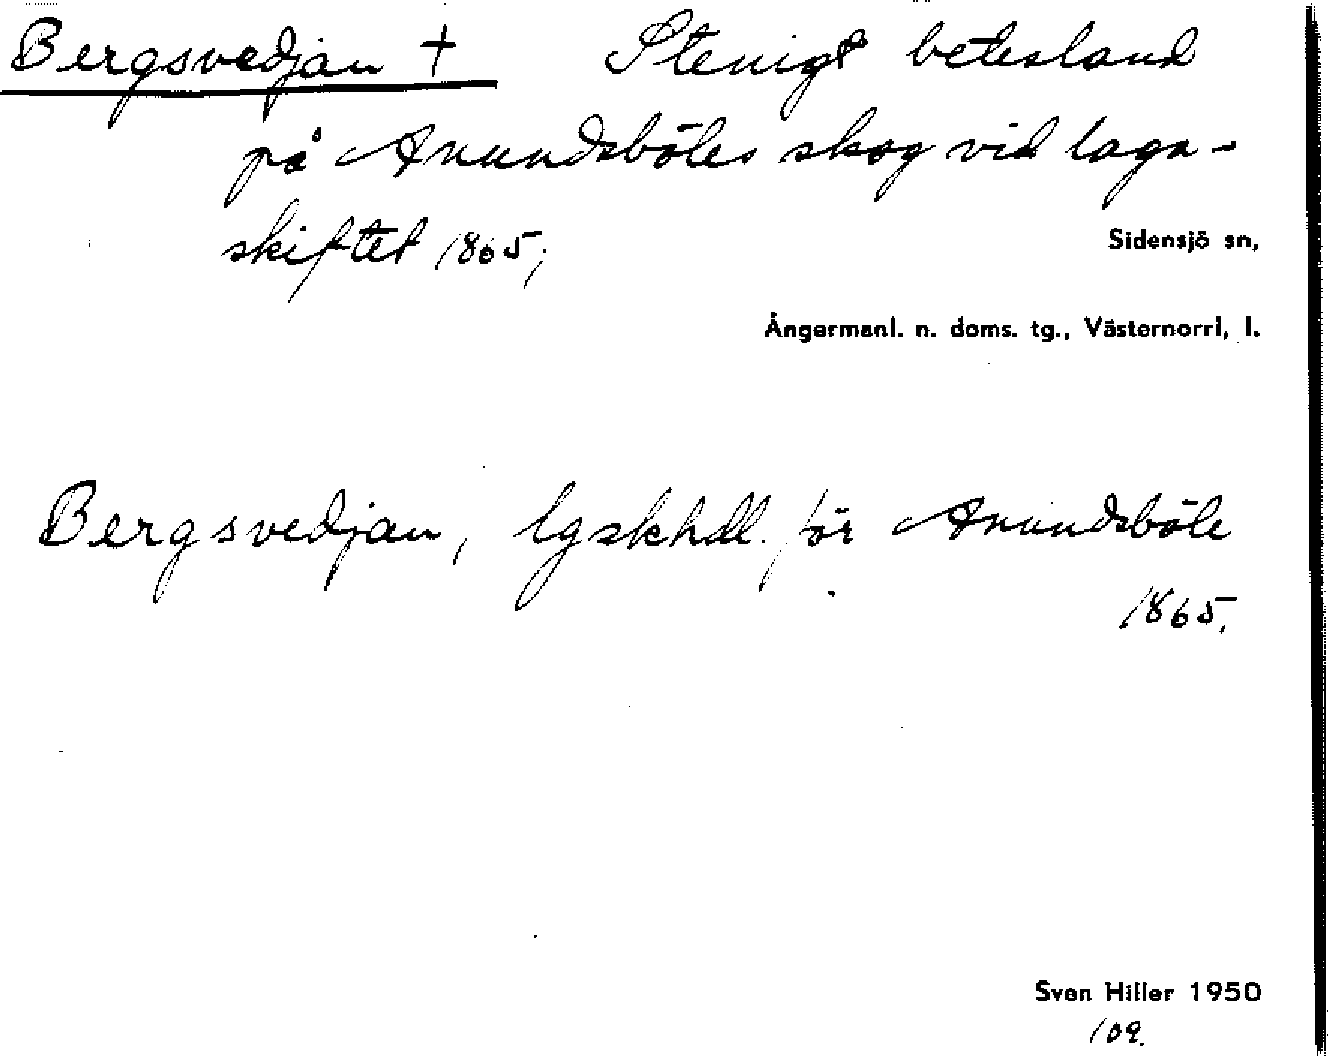 Bergsvedjan † Stenigt betesland
på Anundsböles skog vid laga-
skiftet 1865;
Sidensjö sn,
Ångermanl. n. doms. tg., Västernorrl, l.
Bergsvedjan, lgskhdl. för Anundsböle
1865.
Sven Hiller 1950
109.